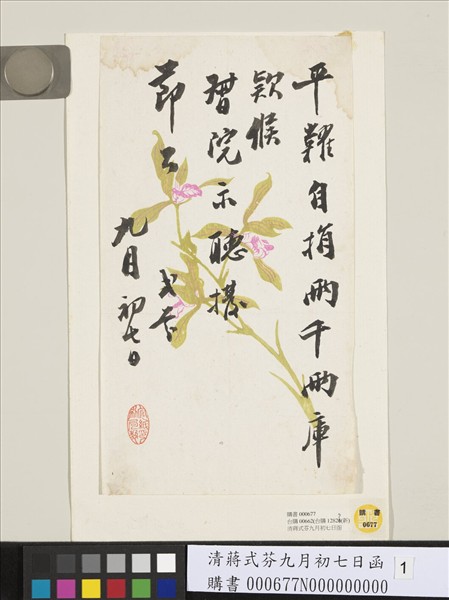 平糶自捐兩千兩庫
款候
瑨院示聽撥
節公
弍芬
九月初七日
購書 000677
清蔣式芬九月初七日函
購書
0677
清蔣式芬九月初七日函
購書 000677N000000000
1